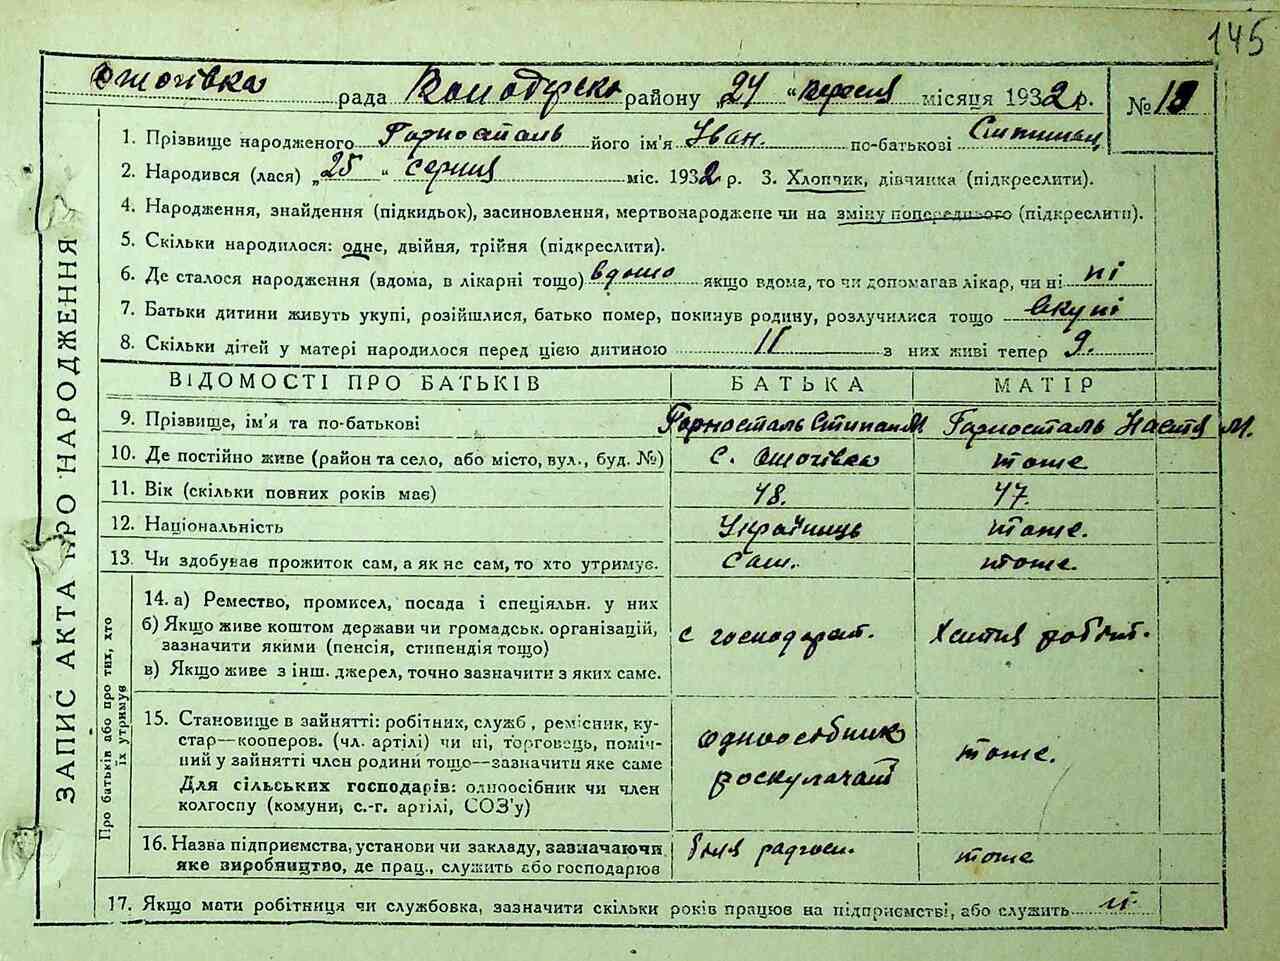 145
рада району „24" вересня місяця 1932 р. №
1. Прізвище народженого Горносталь його ім'я Іван. по-батькові
2. Народився (лася) „25" серпня міс. 1932 р. 3. Хлопчик, дівчинка (підкреслити).
4. Народження, знайдення (підкидьок), засиновлення, мертвонароджене чи на зміну попереднього (підкреслити).
5. Скільки народилося: одне, двійня, трійня (підкреслити).
6. Де сталося народження (вдома, в лікарні тощо) вдома якщо вдома, то чи допомагав лікар, чи ні ні
7. Батьки дитини живуть укупі, розійшлися, батько помер, покинув родину, розлучилися тощо вкупі
8. Скільки дітей у матері народилося перед цією дитиною 11 з них живі тепер 9.
ВІДОМОСТІ ПРО БАТЬКІВ БАТЬКА МАТІР
9. Прізвище, ім'я та по-батькові Горносталь Степан М Горносталь Настя М.
10. Де постійно живе (район та село, або місто, вул., буд. №) с. тоже
11. Вік (скільки повних років має) 48. 47.
12. Національність Українець тоже.
13. Чи здобував прожиток сам, а як не сам, то хто утримує. сам. тоже.
14. а) Ремество, промисел, посада і спеціяльн. у них
б) Якщо живе коштом держави чи громадськ. організацій, зазначити якими (пенсія, стипендія тощо)
с господарст. хатня робіт.
в) Якщо живе з інш. джерел, точно зазначити з яких саме.
15. Становище в зайнятті: робітник, служб, ремісник, ку-
стар—кооперов. (чл. артілі) чи ні, торговець, поміч-
ний у зайнятті член родини тощо—зазначити яке саме
Для сільських господарів: одноосібник чи член
колгоспу (комуни, с.-г. артілі, СОЗ'у)
одноосібник тоже.
16. Назва підприємства, установи чи закладу, зазначаючи
яке виробництво, де прац., служить або господарює
тоже
17. Якщо мати робітниця чи службовка, зазначити скільки років працює на підприємстві, або служить
ЗАПИС АКТА ПРО НАРОДЖЕННЯ
Про батьків або про тих, хто
їх утримує